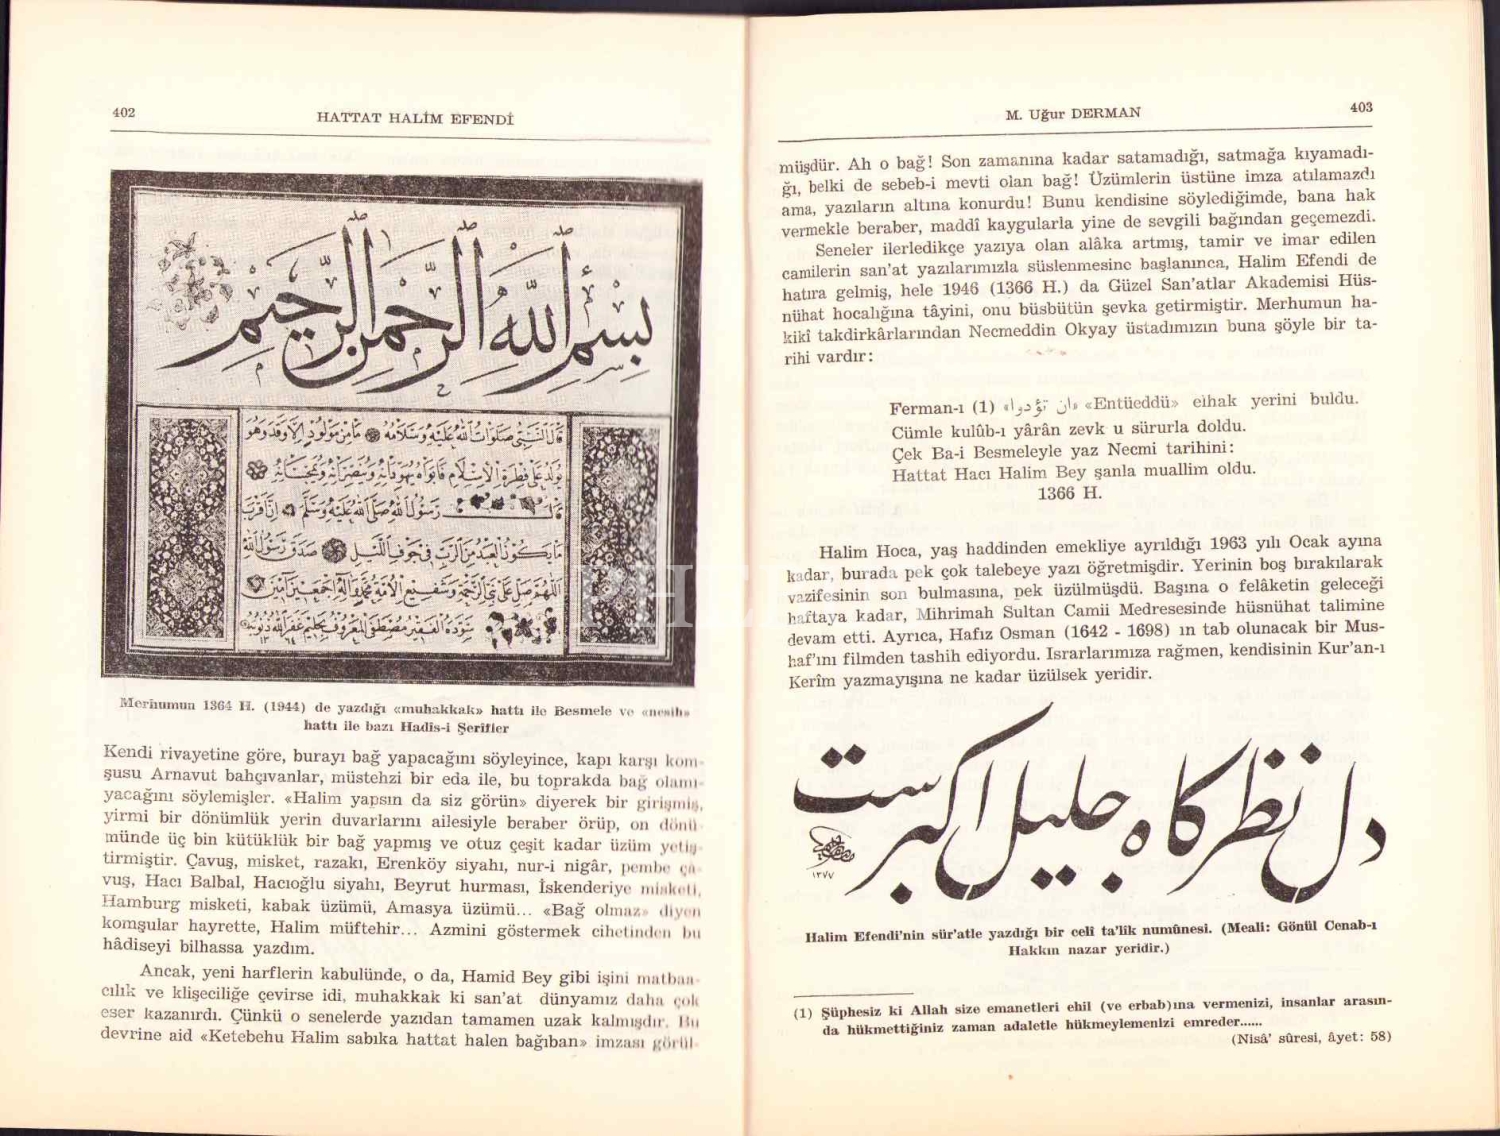 402
HATTAT HALİM EFENDİ
بسم الله الرحمن الرحيم
قال النبي صلوات الله عليه وسلامه ما من مولود إلا وقد وهو
يولد على فطرة الإسلام فأبواه يهودانه وينصرانه ويمجسانه
قال رسول الله صلى الله عليه وسلم إن أقرب
ما يكون العبد من الرب في جوف الليل صدق رسول الله
اللهم صل على نبي الرحمة وشفيع الأمة محمد وآله أجمعين آمين
سوده الفقير مصطفى المعروف بحليم غفر الله ذنوبه
Merhumun 1364 H. (1944) de yazdığı «muhakkak» hattı ile Besmele ve «nesih»
hattı ile bazı Hadîs-i Şerifler
Kendi rivayetine göre, burayı bağ yapacağını söyleyince, kapı karşı kom-
şusu Arnavut bahçıvanlar, müstehzi bir eda ile, bu toprakda bağ olamı-
yacağını söylemişler. «Halim yapsın da siz görün» diyerek bir girişmiş,
yirmi bir dönümlük yerin duvarlarını ailesiyle beraber örüp, on dönü-
münde üç bin kütüklük bir bağ yapmış ve otuz çeşit kadar üzüm yetiş-
tirmiştir. Çavuş, misket, razakı, Erenköy siyahı, nur-i nigâr, pembe ça-
vuş, Hacı Balbal, Hacıoğlu siyahı, Beyrut hurması, İskenderiye misketi,
Hamburg misketi, kabak üzümü, Amasya üzümü... «Bağ olmaz» diyen
komşular hayrette, Halim müftehir... Azmini göstermek cihetinden bu
hâdiseyi bilhassa yazdım.
Ancak, yeni harflerin kabulünde, o da, Hamid Bey gibi işini matbaa-
cılık ve klişeciliğe çevirse idi, muhakkak ki san'at dünyamız daha çok
eser kazanırdı. Çünkü o senelerde yazıdan tamamen uzak kalmışdır. Bu
devrine aid «Ketebehu Halim sabıka hattat halen bağıban» imzası görül-
M. Uğur DERMAN
403
müşdür. Ah o bağ! Son zamanına kadar satamadığı, satmağa kıyamadı-
ğı, belki de sebeb-i mevti olan bağ! Üzümlerin üstüne imza atılamazdı
ama, yazıların altına konurdu! Bunu kendisine söylediğimde, bana hak
vermekle beraber, maddî kaygularla yine de sevgili bağından geçemezdi.
Seneler ilerledikçe yazıya olan alâka artmış, tamir ve imar edilen
camilerin san'at yazılarımızla süslenmesine başlanınca, Halim Efendi de
hatıra gelmiş, hele 1946 (1366 H.) da Güzel San'atlar Akademisi Hüs-
nühat hocalığına tâyini, onu büsbütün şevka getirmiştir. Merhumun ha-
kikî takdirkârlarından Necmeddin Okyay üstadımızın buna şöyle bir ta-
rihi vardır:
Ferman-ı (1) «ان تؤدوا» «Entüeddü» eihak yerini buldu.
Cümle kulûb-ı yârân zevk u sürurla doldu.
Çek Ba-i Besmeleyle yaz Necmi tarihini:
Hattat Hacı Halim Bey şanla muallim oldu.
1366 H.
Halim Hoca, yaş haddinden emekliye ayrıldığı 1963 yılı Ocak ayına
kadar, burada pek çok talebeye yazı öğretmişdir. Yerinin boş bırakılarak
vazifesinin son bulmasına, pek üzülmüşdü. Başına o felâketin geleceği
haftaya kadar, Mihrimah Sultan Camii Medresesinde hüsnühat talimine
devam etti. Ayrıca, Hafız Osman (1642 - 1698) ın tab olunacak bir Mus-
haf'ını filmden tashih ediyordu. Israrlarımıza rağmen, kendisinin Kur'an-ı
Kerîm yazmayışına ne kadar üzülsek yeridir.
دل نظرگاه جليل اكبرست
١٣٧٧
Halim Efendi'nin sür'atle yazdığı bir celî ta'lik numûnesi. (Meali: Gönül Cenab-ı
Hakkın nazar yeridir.)
(1) Şüphesiz ki Allah size emanetleri ehil (ve erbab)ına vermenizi, insanlar arasın-
da hükmettiğiniz zaman adaletle hükmeylemenizi emreder......
(Nisâ' sûresi, âyet: 58)